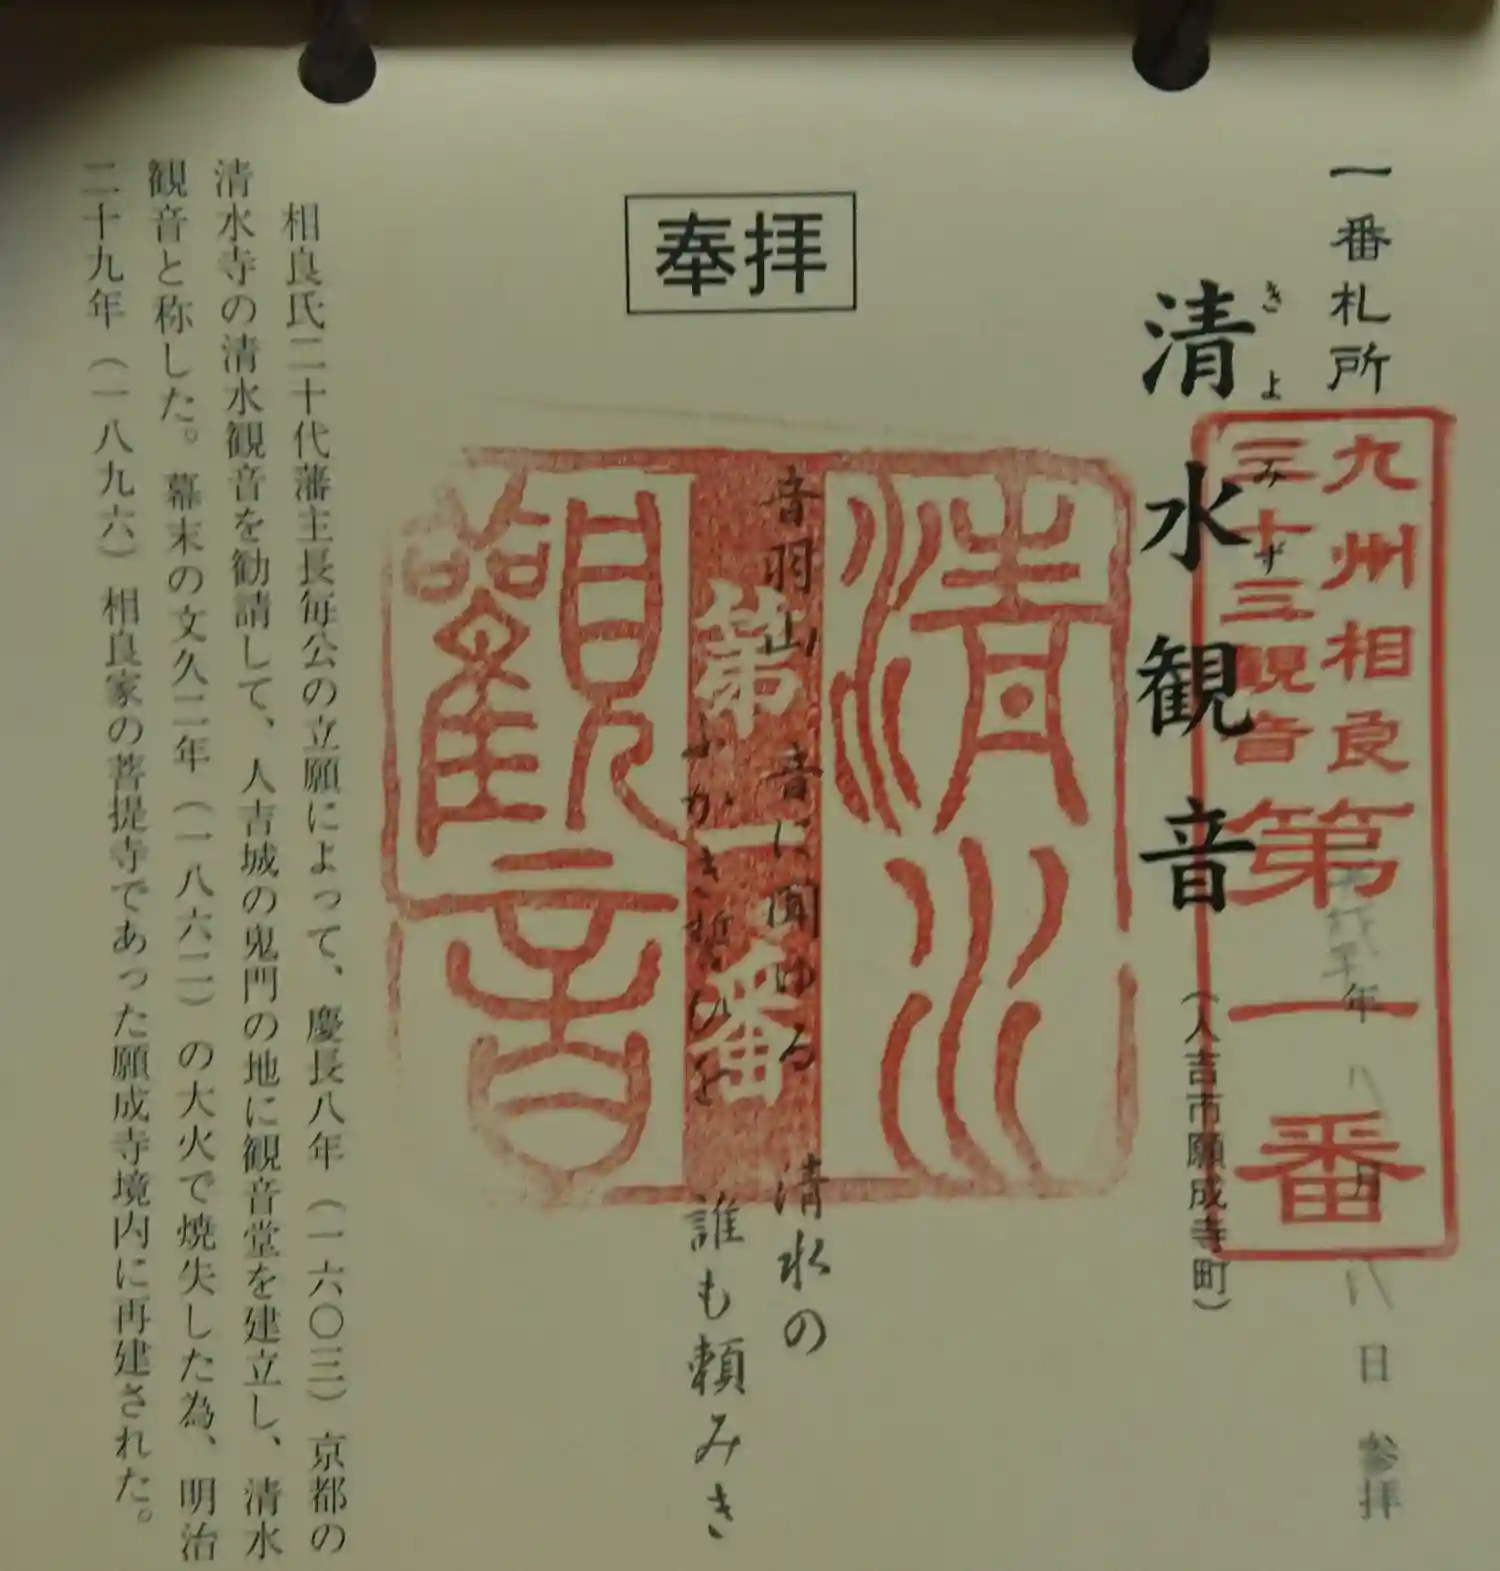 一番札所
清水観音
きよみず
(人吉市願成寺町)
年八月八日参拝
九州相良
三十三観音
第一番
奉拝
清水
第一番
觀音
音羽山 音に聞ゆる 清水の
ふかき誓ひを 誰も頼みき
相良氏二十代藩主長毎公の立願によって、慶長八年(一六〇三)京都の
清水寺の清水観音を勧請して、人吉城の鬼門の地に観音堂を建立し、清水
観音と称した。幕末の文久二年(一八六二)の大火で焼失した為、明治
二十九年(一八九六)相良家の菩提寺であった願成寺境内に再建された。